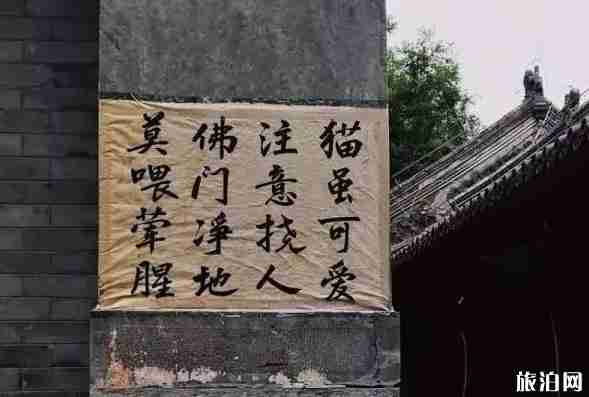 猫虽可爱
注意挠人
佛门净地
莫喂荤腥
旅泊网